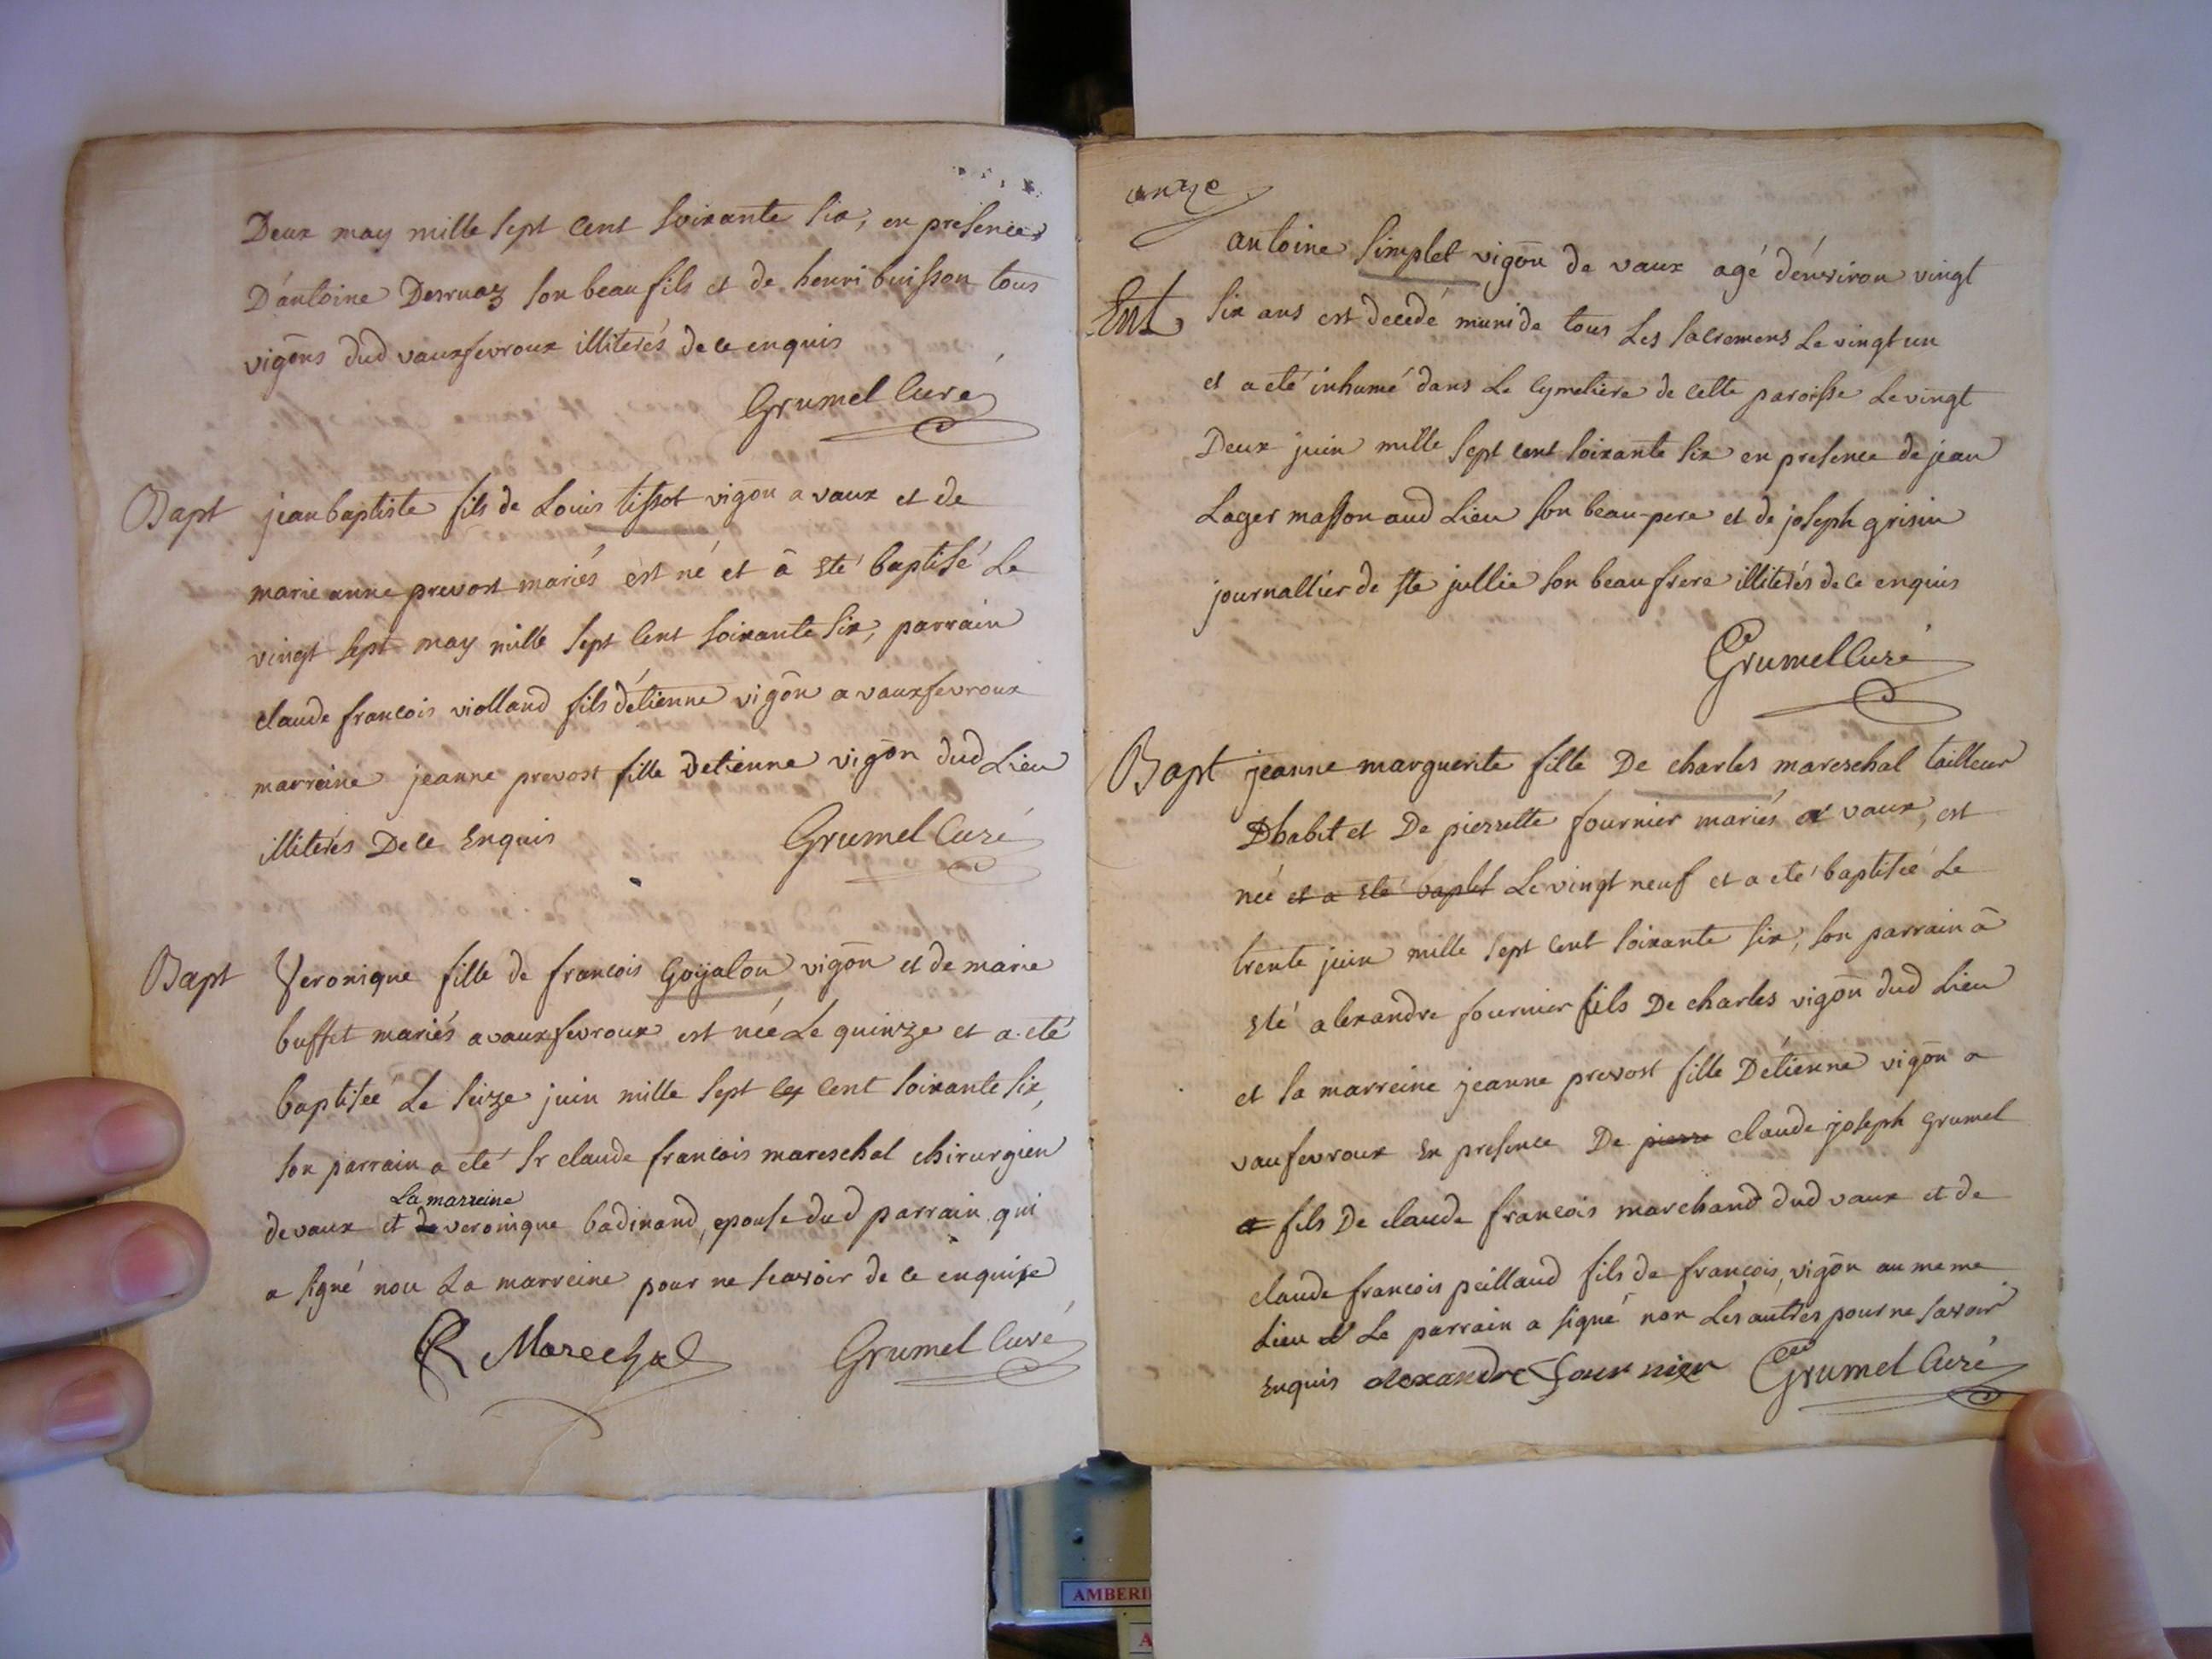 Deux may mille sept cent soixante six, en presence
D'antoine Desruaz son beau fils et de henri buisson tous
vigōns dud vauxfevroux illiterés de ce enquis
Grumel Curé
Bapt jean baptiste fils de Louis tissot vigōn a vaux et de
marie anne prevost mariés est né et â eté baptisé Le
vingt sept may mille sept cent soixante six, parrain
claude francois violland fils d'étienne vigōn a vauxfevroux
marreine jeanne prevost fille detienne vigōn dud Lieu
illiterés De ce Enquis Grumel Curé
Bapt Veronique fille de francois Goyalon vigōn et de marie
buffet mariés a vauxfevroux est née Le quinze et a eté
baptisée Le seize juin mille sept cent soixante six,
son parrain a eté Sr claude francois mareschal chirurgien
La marreine
devaux et de veronique badinand, epouse dud parrain qui
a signé non La marreine pour ne scavoir de ce enquise
Marechal Grumel Curé
onze
antoine Simplet vigōn de vaux agé d'énviron vingt
Ent six ans est decedé muni de tous Les sacremens Le vingt un
et a eté inhumé dans Le cymetière de cette paroisse Le vingt
Deux juin mille sept cent soixante six en presence de jean
Lager masson aud Lieu son beau-pere et de joseph grisin
journallier de ste jullie son beau frere illiterés de ce enquis
Grumel Curé
Bapt jeanne marguerite fille De charles mareschal tailleur
Dhabit et De pierrette fournier mariés a vaux, est
née et a eté baptet Le vingt neuf et a eté baptisée Le
trente juin mille sept cent soixante six, son parrain â
eté alexandre fournier fils De charles vigōn dud Lieu
et sa marreine jeanne prevost fille D'étienne vigōn a
vaufevroux En presence De pierre claude joseph Grumel
fils De claude francois marchand dud vaux et de
claude francois peilland fils de francois, vigōn au meme
Lieu Le parrain a signé non Les autres pour ne savoir
Enquis alexandre fournier Grumel Curé
AMBERI
A